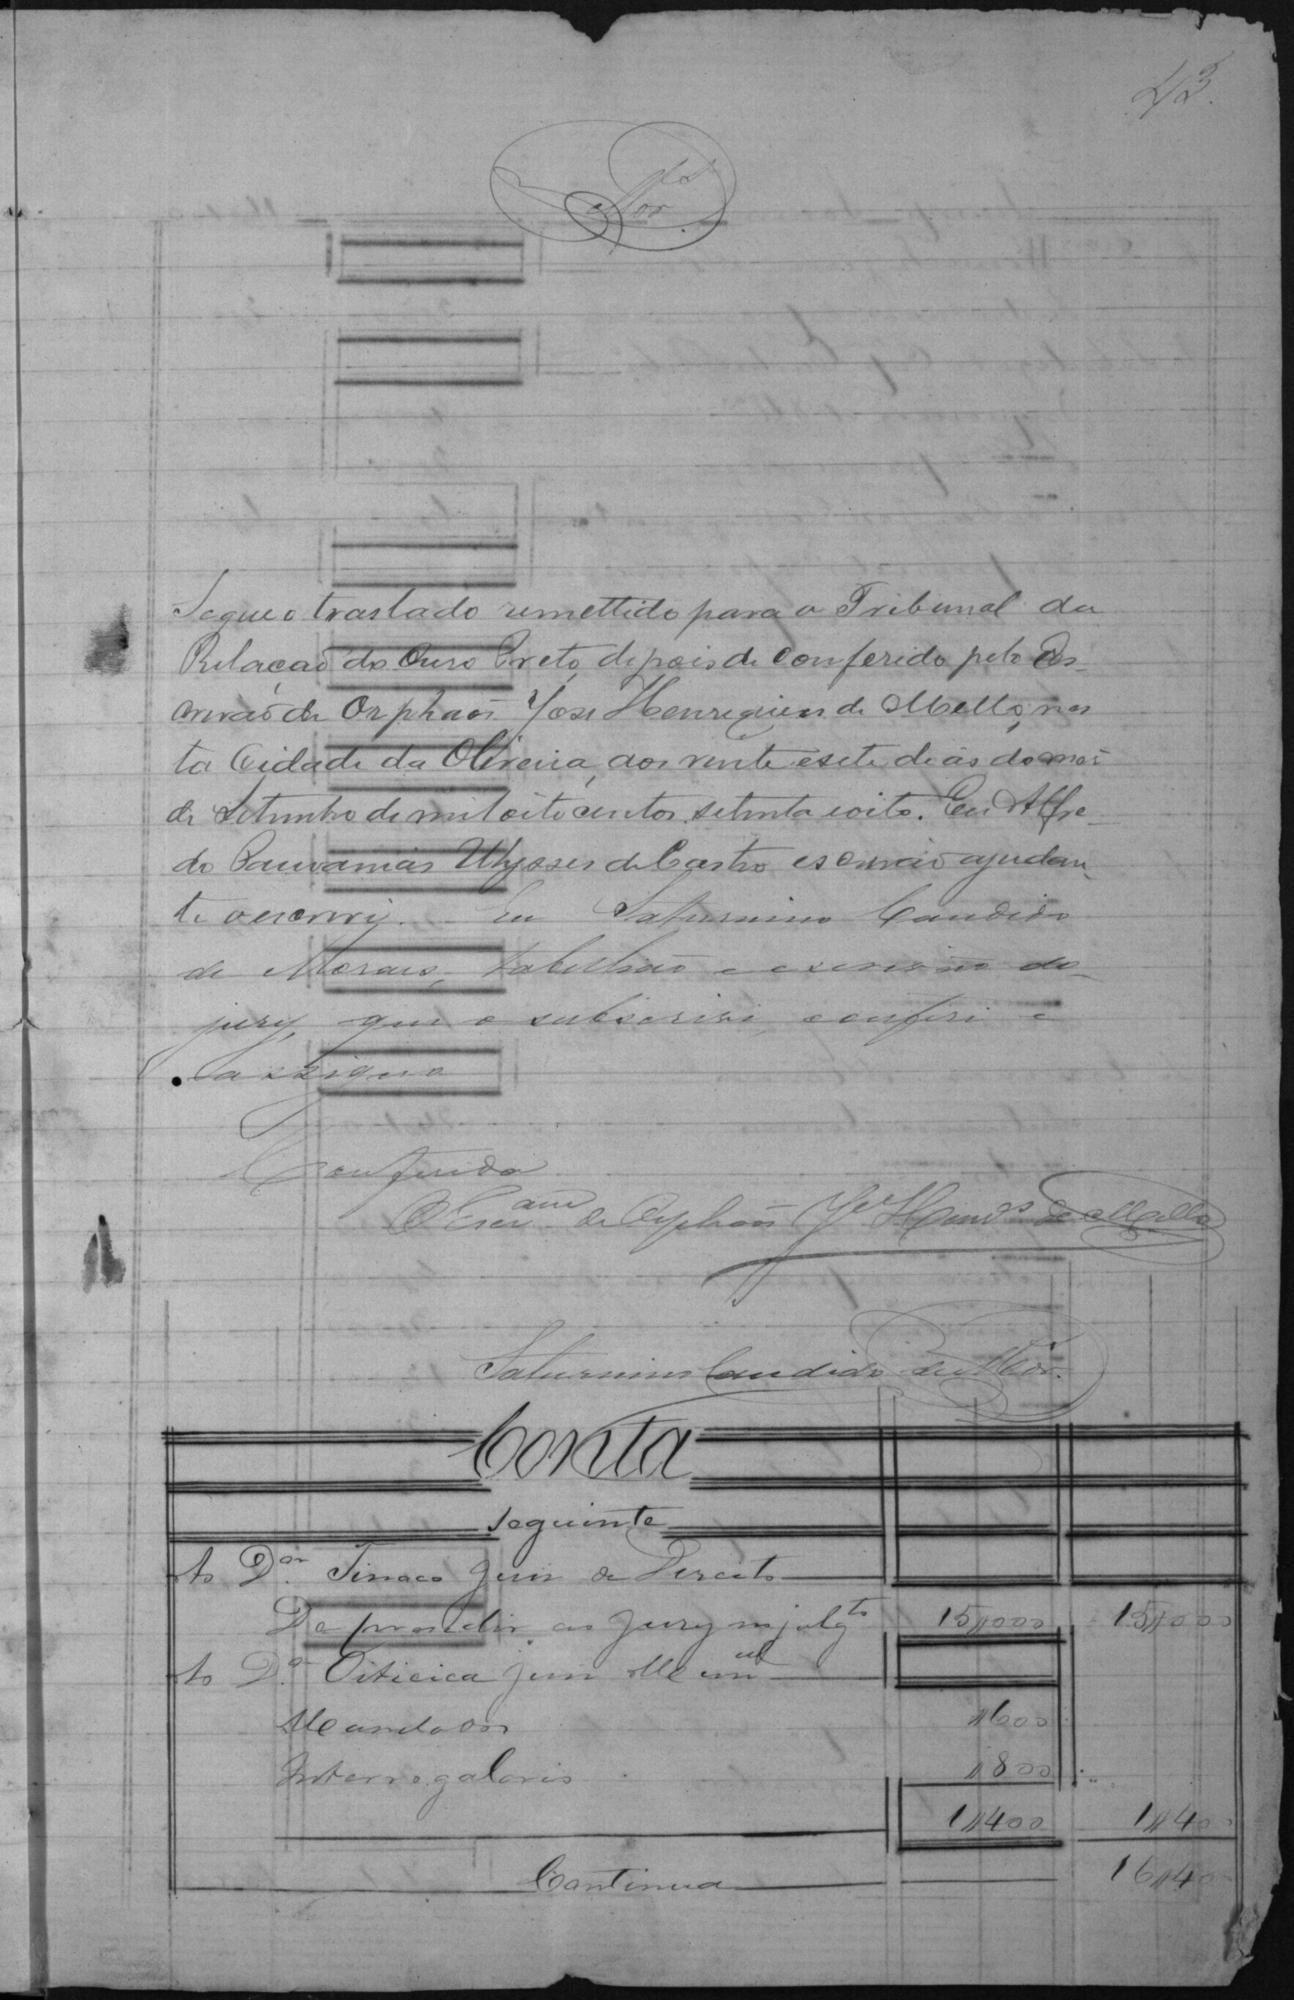 43.
Segue o traslado remettido para o Tribunal da
Relação do Ouro Preto, depois de Conferido pelo Es-
crivão de Orphaõs José Henriques de Mello, nes
ta Cidade da Oliveira, aos vinte e sete dias do mes
de Setembro de mil oito centos setenta e oito. Eu Alfre-
do Ulysses de Castro escrivão ajudan-
te o escrevi. Eu Saturnino Candido
de Moraes, tabelião e escrivão do
jury, que o subscrivi, conferi e
assigno
Conferida
O Escram de Orphaõs José Henrs de Mello
Saturnino Candido de Mor.
Conta
seguinte
Ao Dor. Juiz de Direito
De presidir ao Jury e julgto 15$000 15$000
Ao Dr. Oiticica juiz Munal
Mandados $600
Interrogatorio $800
1$400 1$400
Continua 16$40